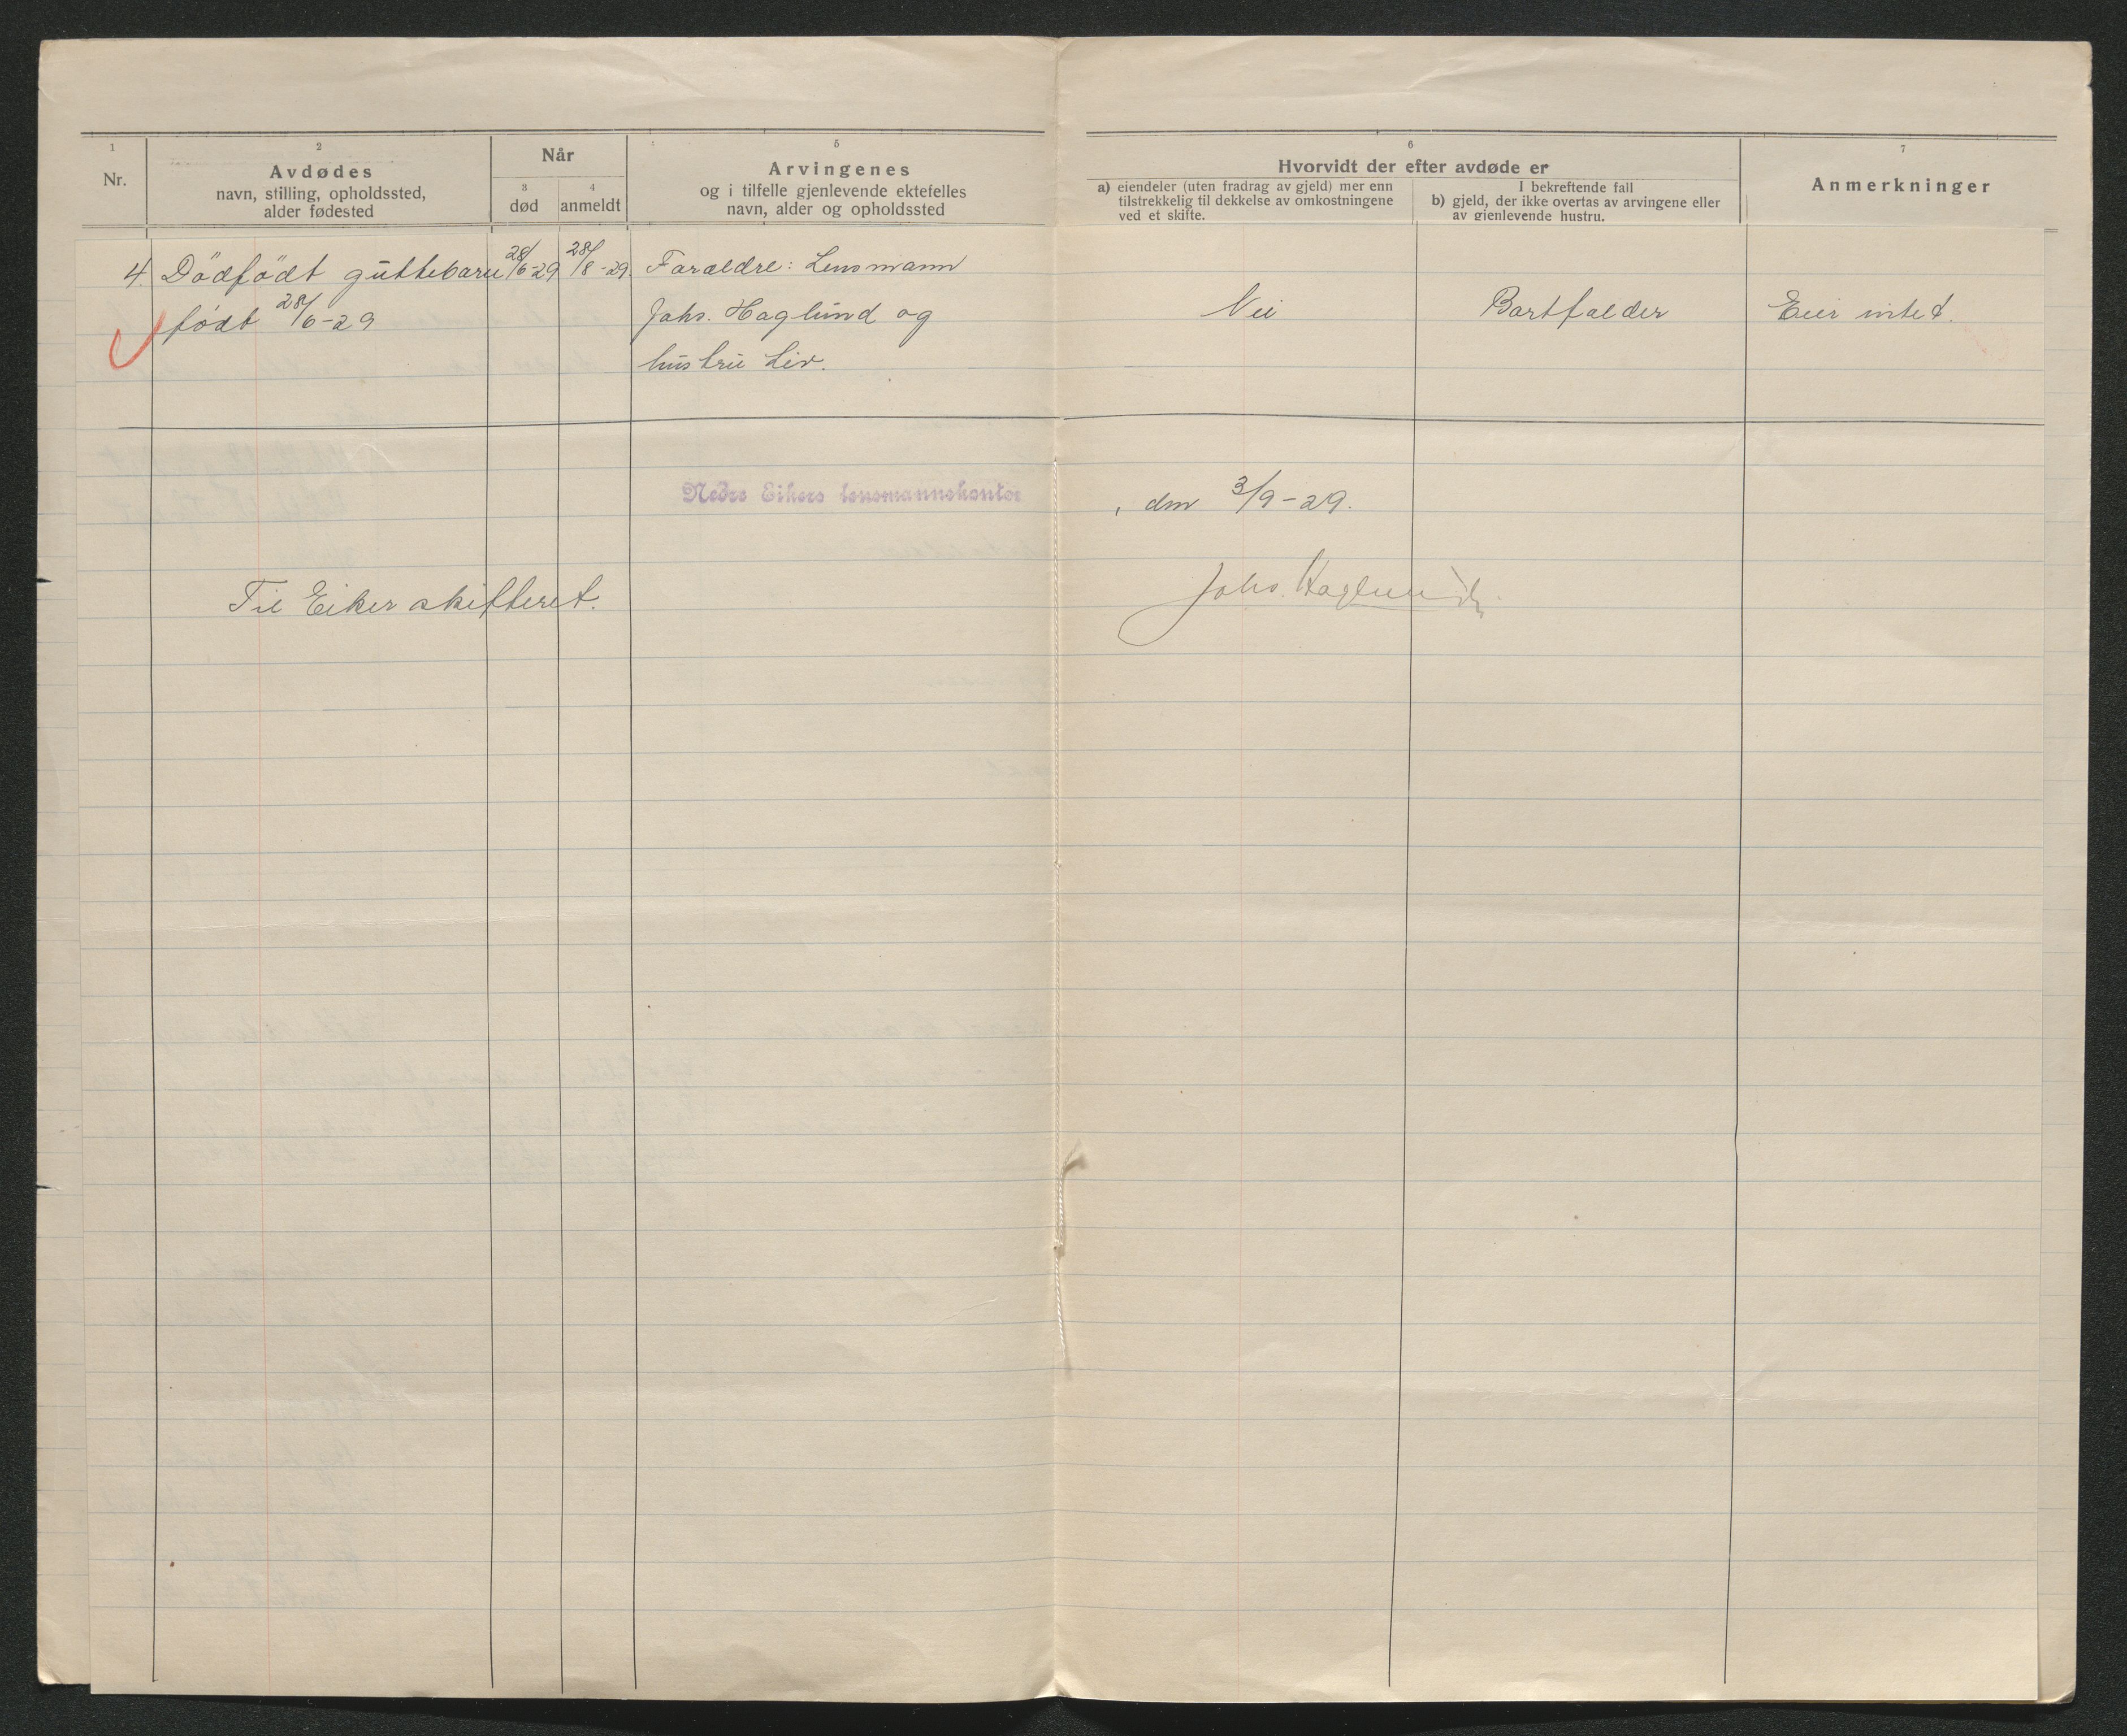 1
Nr.
2
Avdødes
navn, stilling, opholdssted,
alder fødested
Når
3
død
4
anmeldt
5
Arvingenes
og i tilfelle gjenlevende ektefelles
navn, alder og opholdssted
6
Hvorvidt der efter avdøde er
a) eiendeler (uten fradrag av gjeld) mer enn
tilstrekkelig til dekkelse av omkostningene
ved et skifte.
I bekreftende fall
b) gjeld, der ikke overtas av arvingene eller
av gjenlevende hustru.
7
Anmerkninger
4. Dödfödt guttebarn 28/6-29 28/8-29. Foraeldre: Lensmann
födt 28/6-29 Johs. Haglund og Nei Bortfalder Eier intet.
hustru Liv.
Nedre Eikers lensmannskontor, den 3/9-29.
Til Eiker skifteret. Johs. Haglund